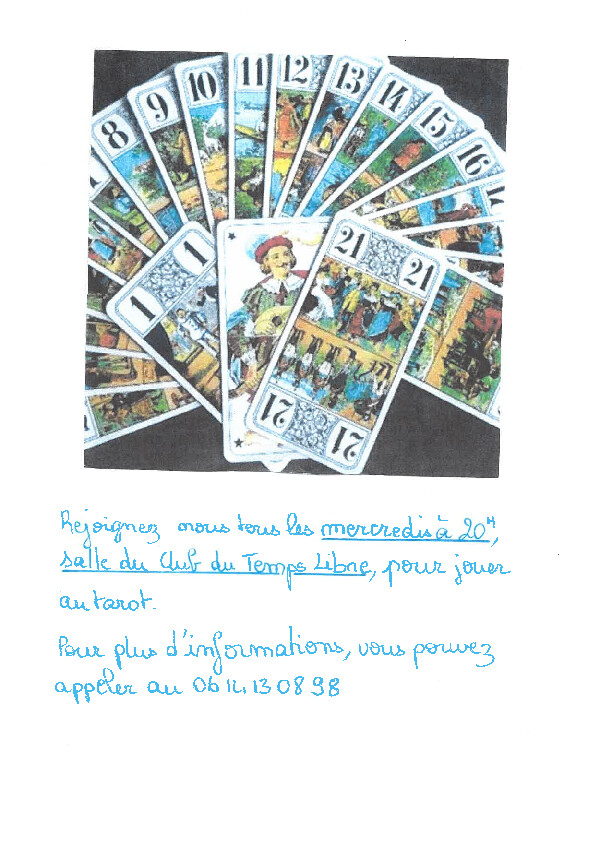 8
9
10
11
12
13
14
15
16
1
1
21
21
21
21
Rejoignez nous tous les mercredis à 20H,
salle du Club du Temps Libre, pour jouer
au tarot.
Pour plus d'informations, vous pouvez
appeler au 06 14 13 08 98